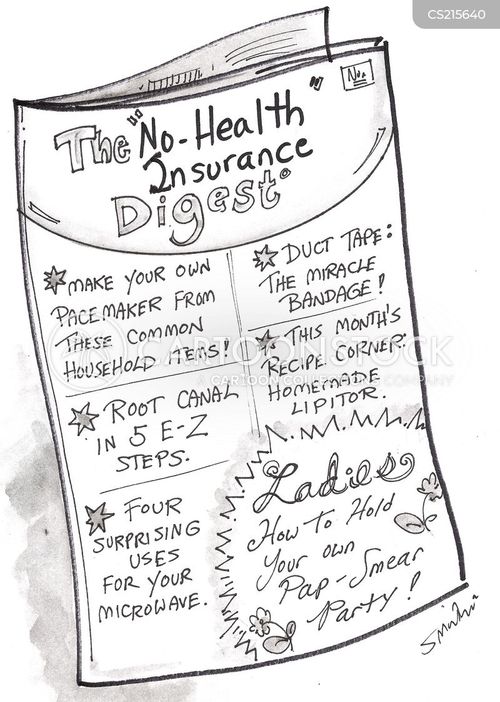 CS215640
Nov
The "No-Health"
Insurance
Digest
MAKE YOUR OWN
PACEMAKER FROM
THESE COMMON
HOUSEHOLD ITEMS!
ROOT CANAL
IN 5 E-Z
STEPS.
FOUR
SURPRISING
USES
FOR YOUR
MICROWAVE.
DUCT TAPE:
THE MIRACLE
BANDAGE!
THIS MONTH'S
RECIPE CORNER:
HOMEMADE
LIPITOR.
Ladies
How to Hold
Your own
Pap-Smear
Party!
CARTOONSTOCK
A CARTOON COLLECTIONS COMPANY